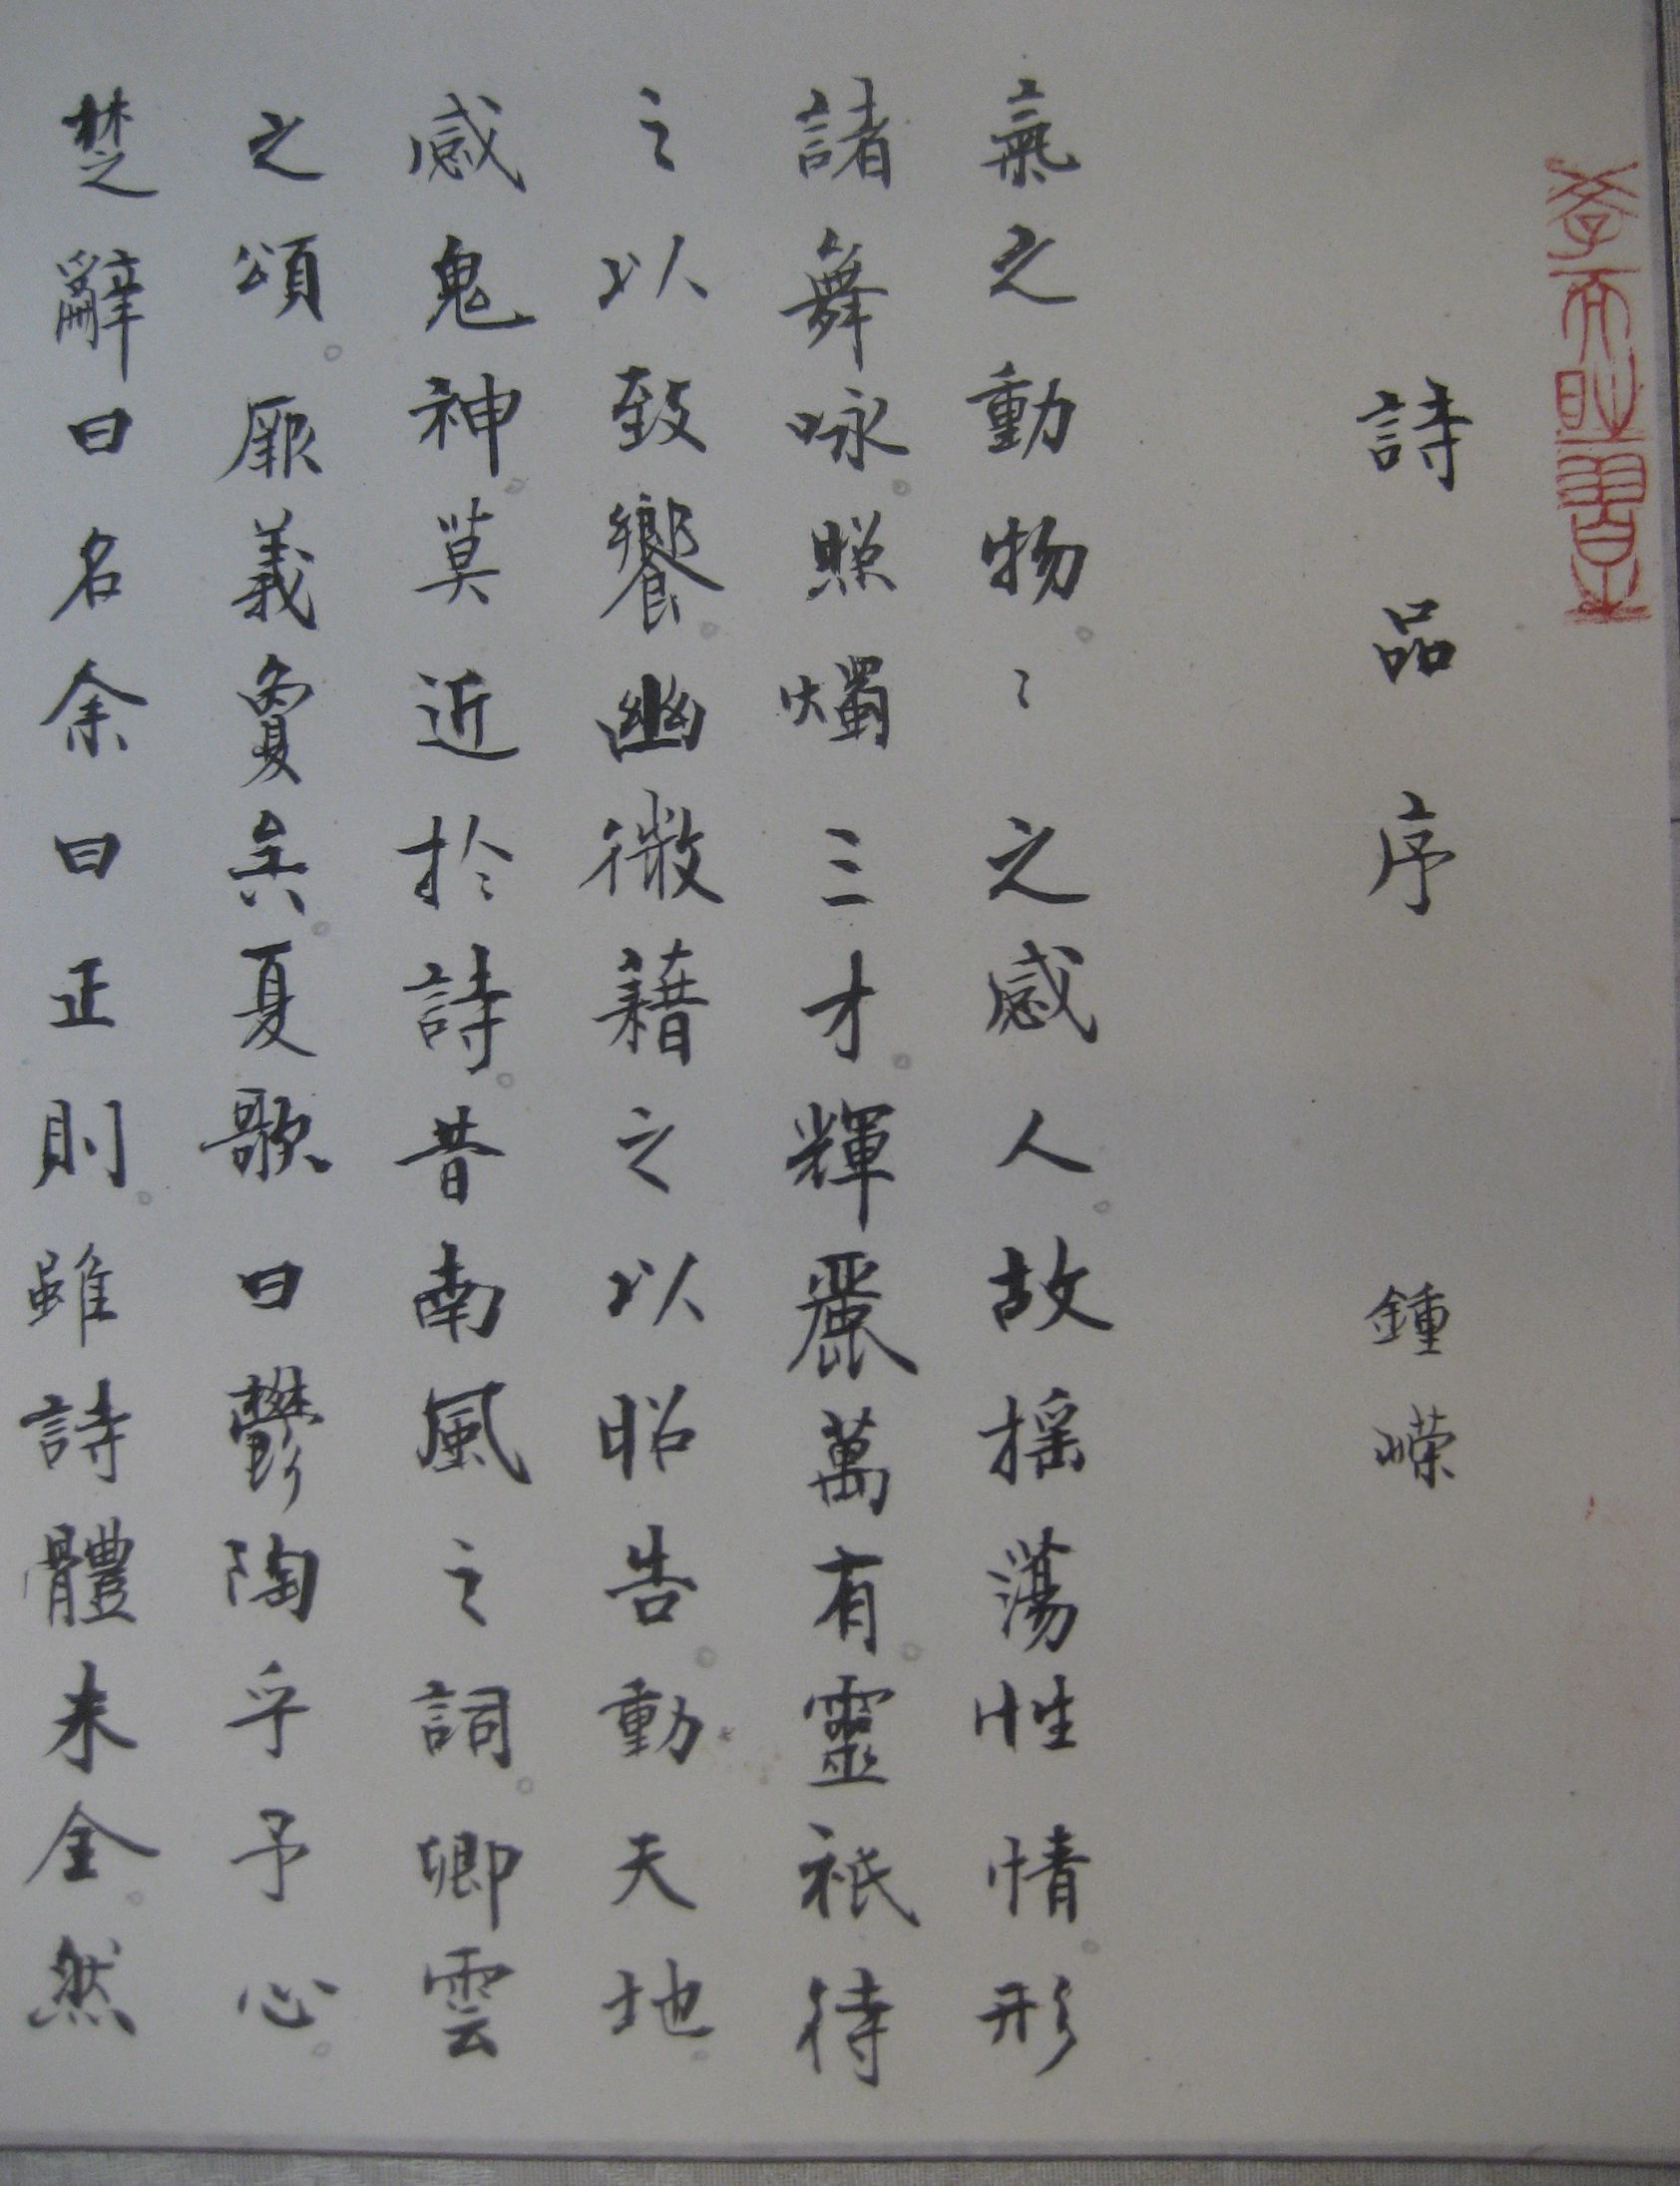 詩品序 鍾嶸
氣之動物。〻之感人。故搖蕩性情。形
諸舞咏。照燭三才。輝麗萬有。靈祇待
之以致饗。幽微藉之以昭告。動天地。
感鬼神。莫近於詩。昔南風之詞。卿雲
之頌。厥義敻矣。夏歌曰鬱陶乎予心。
楚辭曰名余曰正則。雖詩體未全。然